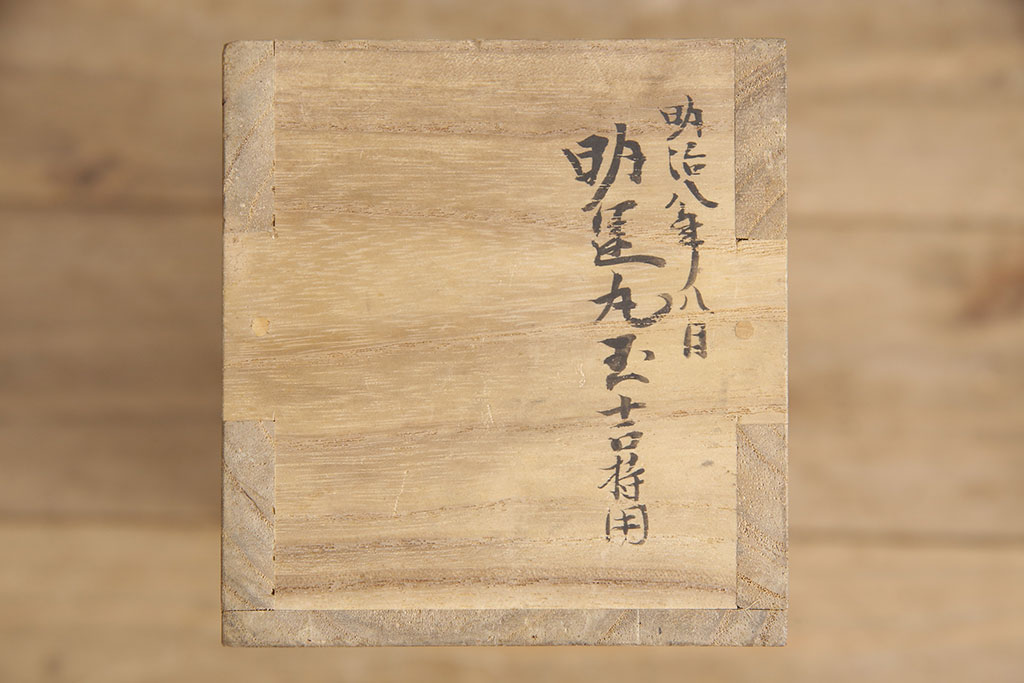 明治八年八月
明運丸玉吉持用